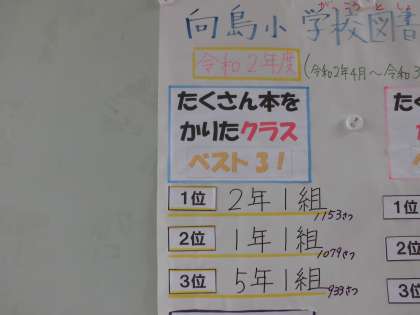 向島小 学校図書
がっこうとしょ
令和2年度(令和2年4月〜令和3
たくさん本を
かりたクラス
ベスト3!
1位 2年1組 1153さつ
2位 1年1組 1079さつ
3位 5年1組 933さつ
1位
2位
3位